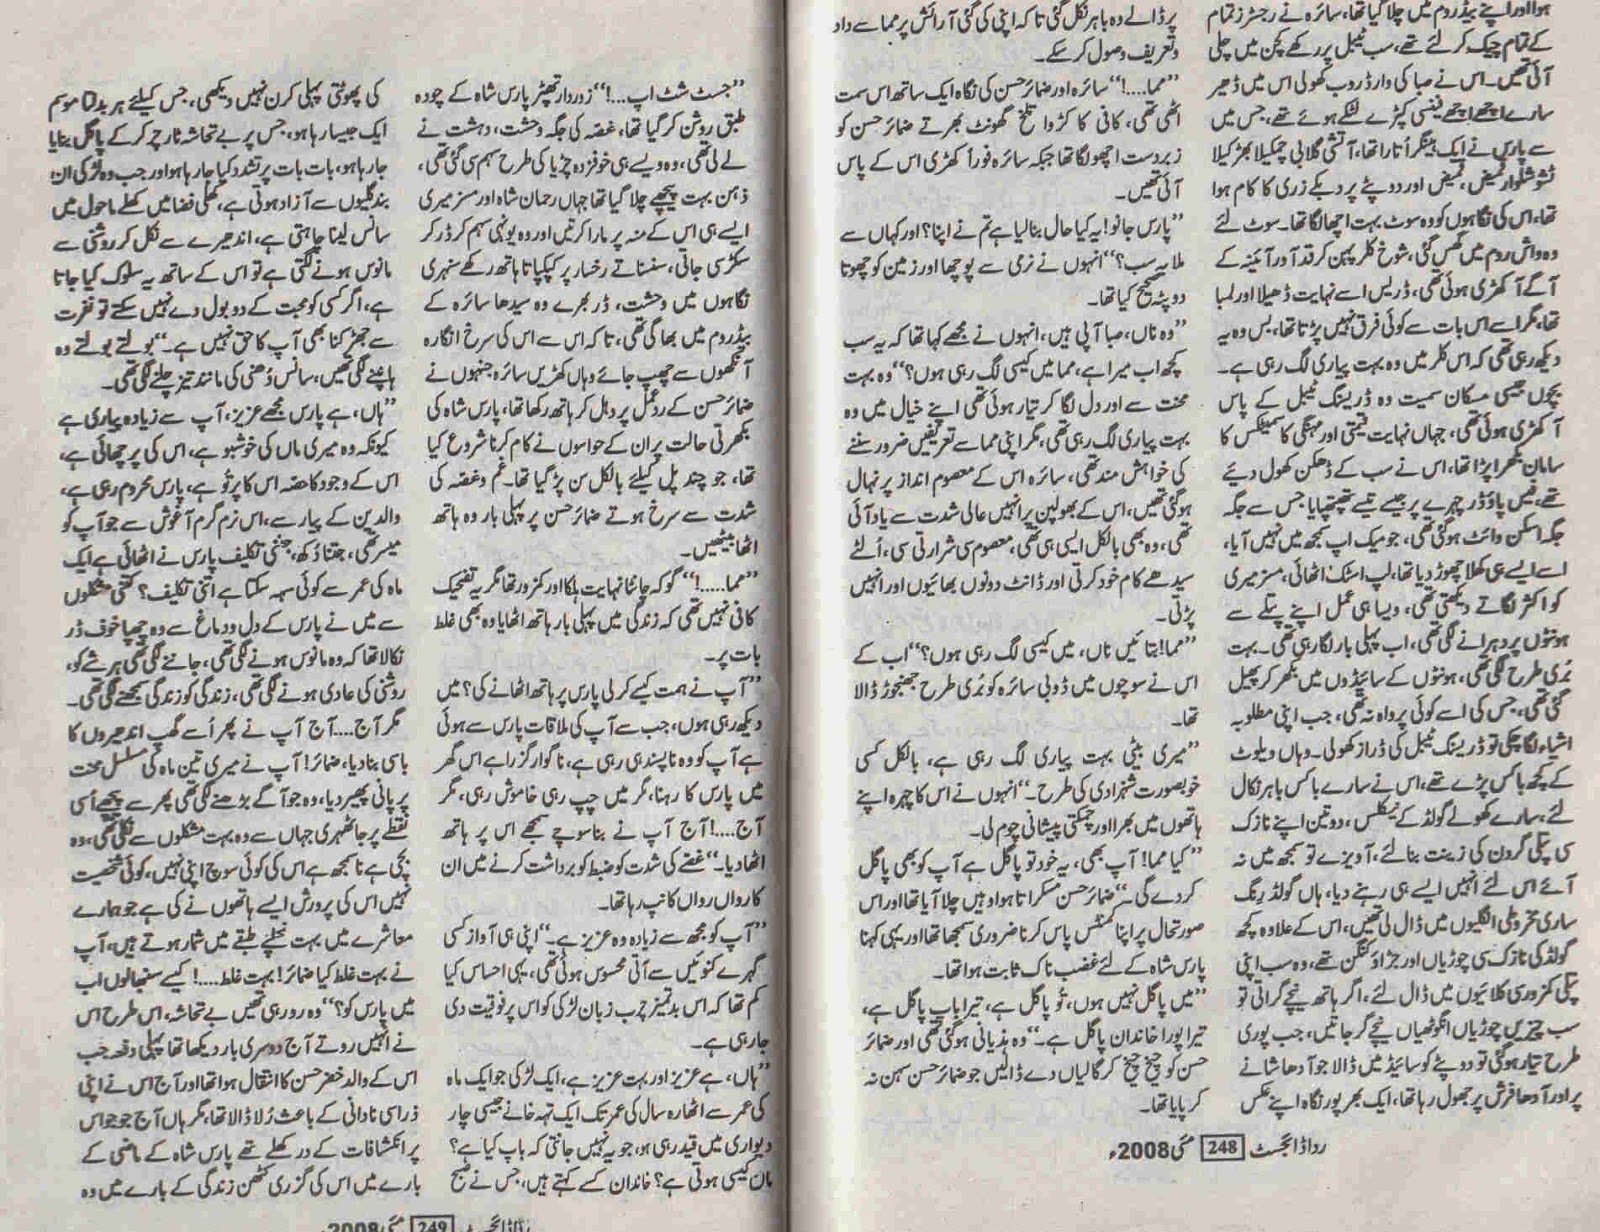 ہوا اور اپنے بیڈروم میں چلا گیا تھا، سائرہ نے رجسٹرز تمام
کے تمام چیک کر لئے تھے، سب ٹیبل پر رکھے کچن میں چلی
آئی تھیں۔ اس نے صبا کی وارڈ روب کھولی اس میں ڈھیر
سارے اچھے اچھے فینسی کپڑے لٹکے ہوئے تھے، جس میں
سے پارس نے ایک ہینگر اُتارا تھا، آتشی گلابی چمکیلا بھڑکیلا
ٹشو شلوار قمیض، قمیض اور دوپٹے پر دبکے زری کا کام ہوا
تھا، اس کی نگاہوں کو وہ سوٹ بہت اچھا لگا تھا۔ سوٹ لئے
وہ واش روم میں گھس گئی، شوخ کلر پہن کر قد آور آئینہ کے
آگے آ کھڑی ہوئی تھی، ڈریس اسے نہایت ڈھیلا اور لمبا
تھا، مگر اسے اس بات سے کوئی فرق نہیں پڑتا تھا، بس وہ یہ
دیکھ رہی تھی کہ اس کلر میں وہ بہت پیاری لگ رہی ہے۔
بچوں جیسی مسکان سمیت وہ ڈریسنگ ٹیبل کے پاس
آ کھڑی ہوئی تھی، جہاں نہایت قیمتی اور مہنگی کا سمیٹکس کا
سامان بکھرا پڑا تھا، اس نے سب کے ڈھکن کھول دیئے
تھے، فیس پاؤڈر چہرے پر جیسے تیسے تھپتھپایا جس سے جگہ
جگہ اسکن وائٹ ہو گئی تھی، جو میک اپ سمجھ میں نہیں آیا،
اسے ایسے ہی کھلا چھوڑ دیا تھا، لپ اسٹک اٹھائی، مسز میری
کو اکثر لگاتے دیکھتی تھی، ویسا ہی عمل اپنے پتلے سے
ہونٹوں پر دہرانے لگی تھی، اب پہلی بار لگا رہی تھی۔ بہت
بُری طرح لگی تھی، ہونٹوں کے سائیڈوں میں بکھر کر پھیل
گئی تھی، جس کی اسے کوئی پرواہ نہ تھی، جب اپنی مطلوبہ
اشیاء لگا چکی تو ڈریسنگ ٹیبل کی دراز کھولی۔ وہاں ویلوٹ
کے کچھ باکس پڑے تھے، اس نے سارے باکس باہر نکال
لئے، سارے کھولے گولڈ کے نیکلس، دو تین اپنے نازک
سی پتلی گردن کی زینت بنا لئے، آویزے تو سمجھ میں نہ
آئے اس لئے انہیں ایسے ہی رہنے دیا، ہاں گولڈ رنگ
ساری مخروطی انگلیوں میں ڈال لی تھیں، اس کے علاوہ کچھ
گولڈ کی نازک سی چوڑیاں اور جڑاؤ کنگن تھے، وہ سب اپنی
پتلی کمزور سی کلائیوں میں ڈال لئے، اگر ہاتھ نیچے گراتی تو
سب چیزیں چوڑیاں انگوٹھیاں نیچے گر جاتیں، جب پوری
طرح تیار ہو گئی تو دوپٹے کو سائیڈ میں ڈالا جو آدھا شانے
پر اور آدھا فرش پر جھول رہا تھا، ایک بھرپور نگاہ اپنے عکس
پر ڈالے وہ باہر نکل گئی تا کہ اپنی کی گئی آرائش پر مما سے داد
و تعریف وصول کر سکے۔
”مما....!“ سائرہ اور ضمائر حسن کی نگاہ ایک ساتھ اس سمت
اٹھی تھی، کافی کا کڑوا تلخ گھونٹ بھرتے ضمائر حسن کو
زبردست اچھو لگا تھا جبکہ سائرہ فوراً کھڑی اس کے پاس
آئی تھیں۔
”پارس جانو! یہ کیا حال بنا لیا ہے تم نے اپنا؟ اور کہاں سے
ملا یہ سب؟“ انہوں نے نرمی سے پوچھا اور زمین کو چھوتا
دوپٹہ کھینچ کیا تھا۔
”وہ ناں، صبا آپی ہیں، انہوں نے مجھے کہا تھا کہ یہ سب
کچھ اب میرا ہے، مما میں کیسی لگ رہی ہوں؟“ وہ بہت
محنت سے اور دل لگا کر تیار ہوئی تھی اپنے خیال میں وہ
بہت پیاری لگ رہی تھی، مگر اپنی مما سے تعریفیں ضرور سننے
کی خواہش مند تھی، سائرہ اس کے معصوم انداز پر نہال
ہو گئی تھیں، اس کے بھولپن پر انہیں عالی شدت سے یاد آئی
تھی، وہ بھی بالکل ایسی ہی تھی، معصوم سی شرارتی سی، اُلٹے
سیدھے کام خود کرتی اور ڈانٹ دونوں بھائیوں اور انہیں
پڑتی۔
”مما! بتائیں ناں، میں کیسی لگ رہی ہوں؟“ اب کے
اس نے سوچوں میں ڈوبی سائرہ کو بُری طرح جھنجوڑ ڈالا
تھا۔
”میری بیٹی بہت پیاری لگ رہی ہے، بالکل کسی
خوبصورت شہزادی کی طرح۔“ انہوں نے اس کا چہرہ اپنے
ہاتھوں میں بھرا اور چمکتی پیشانی چوم لی۔
”کیا مما! آپ بھی، یہ خود تو پاگل ہے آپ کو بھی پاگل
کر دے گی۔“ ضمائر حسن مسکراتا ہوا وہیں چلا آیا تھا اور اس
صورتحال پر اپنا کمنٹس پاس کرنا ضروری سمجھا تھا اور یہی کہنا
پارس شاہ کے لئے غضب ناک ثابت ہوا تھا۔
”میں پاگل نہیں ہوں، تُو پاگل ہے، تیرا باپ پاگل ہے،
تیرا پورا خاندان پاگل ہے۔“ وہ ہذیانی ہو گئی تھی اور ضمائر
حسن کو چیخ چیخ کر گالیاں دے ڈالیں جو ضمائر حسن سہن نہ
کر پایا تھا۔
رواڈائجسٹ 248 مئی 2008ء
”جسٹ شٹ اپ....!“ زوردار تھپڑ پارس شاہ کے چودہ
طبق روشن کر گیا تھا، غصہ کی جگہ وحشت، دہشت نے
لے لی تھی، وہ ویسے ہی خوفزدہ چڑیا کی طرح سہم سی گئی تھی،
ذہن بہت پیچھے چلا گیا تھا جہاں رحمان شاہ اور مسز میری
ایسے ہی اس کے منہ پر مارا کرتیں اور وہ یونہی سہم کر ڈر کر
سکڑ سی جاتی، سنسناتے رخسار پر کپکپاتا ہاتھ رکھے سنہری
نگاہوں میں وحشت، ڈر بھرے وہ سیدھا سائرہ کے
بیڈروم میں بھاگی تھی، تا کہ اس سے اس کی سرخ انگارہ
آنکھوں سے چھپ جائے وہاں کھڑیں سائرہ جنہوں نے
ضمائر حسن کے ردعمل پر دہل کر ہاتھ رکھا تھا، پارس شاہ کی
بکھرتی حالت پر ان کے حواسوں نے کام کرنا شروع کیا
تھا، جو چند پل کیلئے بالکل سن پڑ گیا تھا۔ غم و غصہ کی
شدت سے سرخ ہوتے ضمائر حسن پر پہلی بار وہ ہاتھ
اٹھا بیٹھیں۔
”مما.....!“ گو کہ چانٹا نہایت ہلکا اور کمزور تھا مگر یہ تضحیک
کافی نہیں تھی کہ زندگی میں پہلی بار ہاتھ اٹھایا وہ بھی غلط
بات پر۔
”آپ نے ہمت کیسے کر لی پارس پر ہاتھ اٹھانے کی؟ میں
دیکھ رہی ہوں، جب سے آپ کی ملاقات پارس سے ہوئی
ہے آپ کو وہ ناپسند ہی رہی ہے، ناگوار گزرا ہے اس گھر
میں پارس کا رہنا، مگر میں چپ رہی خاموش رہی، مگر
آج....! آج آپ نے بنا سوچے سمجھے اس پر ہاتھ
اٹھا دیا۔“ غصے کی شدت کو ضبط کو برداشت کرنے میں ان
کا رواں رواں کانپ رہا تھا۔
”آپ کو مجھ سے زیادہ وہ عزیز ہے۔“ اپنی ہی آواز کسی
گہرے کنوئیں سے آتی محسوس ہوئی تھی، یہی احساس کیا
کم تھا کہ اس بدتمیز چرب زبان لڑکی کو اس پر فوقیت دی
جا رہی ہے۔
”ہاں، ہے عزیز اور بہت عزیز ہے، ایک لڑکی جو ایک ماہ
کی عمر سے اٹھارہ سال کی عمر تک ایک تہہ خانے جیسی چار
دیواری میں قید رہی ہو، جو یہ نہیں جانتی کہ باپ کیا ہے؟
ماں کیسی ہوتی ہے؟ خاندان کسے کہتے ہیں، جس نے صبح
کی پھوٹتی پہلی کرن نہیں دیکھی، جس کیلئے ہر بدلتا موسم
ایک جیسا رہا ہو، جس پر بے تحاشہ ٹارچر کر کے پاگل بنایا
جا رہا ہو، بات بات پر تشدد کیا جا رہا ہو اور جب وہ لڑکی ان
بندگلیوں سے آزاد ہوتی ہے، کھلی فضا میں کھلے ماحول میں
سانس لینا چاہتی ہے، اندھیرے سے نکل کر روشنی سے
مانوس ہونے لگتی ہے تو اس کے ساتھ یہ سلوک کیا جاتا
ہے، اگر کسی کو محبت کے دو بول دے نہیں سکتے تو نفرت
سے جھڑکنا بھی آپ کا حق نہیں ہے۔“ بولتے بولتے وہ
ہانپنے لگی تھیں، سانس دُھنی کی مانند تیز چلنے لگی تھی۔
”ہاں، ہے پارس مجھے عزیز، آپ سے زیادہ پیاری ہے
کیونکہ وہ میری ماں کی خوشبو ہے، اس کی پرچھائی ہے،
اس کے وجود کا حصہ اس کا پرتَو ہے، پارس محروم رہی ہے،
والدین کے پیار سے، اس نرم گرم آغوش سے جو آپ کو
میسر تھی، جتنا دُکھ، جتنی تکلیف پارس نے اٹھائی ہے ایک
ماہ کی عمر سے کوئی سہہ سکتا ہے اتنی تکلیف؟ کتنی مشکلوں
سے میں نے پارس کے دل و دماغ سے وہ چھپا خوف ڈر
نکالا تھا کہ وہ مانوس ہونے لگی تھی، جاننے لگی تھی ہر شے کو،
روشنی کی عادی ہونے لگی تھی، زندگی کو زندگی سمجھنے لگی تھی۔
مگر آج.... آج آپ نے پھر اُسے گھپ اندھیروں کا
باسی بنا دیا، ضمائر! آپ نے میری تین ماہ کی مسلسل محنت
پر پانی پھیر دیا، وہ جو آگے بڑھنے لگی تھی پھر سے پیچھے اُسی
نقطے پر جا ٹھہری جہاں سے وہ بہت مشکلوں سے نکلی تھی، وہ
بچی ہے نا سمجھ ہے اس کی کوئی سوچ اپنی نہیں، کوئی شخصیت
نہیں اس کی پرورش ایسے ہاتھوں نے کی ہے جو ہمارے
معاشرے میں بہت نچلے طبقے میں شمار ہوتے ہیں، آپ
نے بہت غلط کیا ضمائر! بہت غلط....! کیسے سنبھالوں اب
میں پارس کو؟“ وہ رو رہی تھیں بے تحاشہ، اس طرح اس
نے انہیں روتے آج دوسری بار دیکھا تھا پہلی دفعہ جب
اس کے والد خضر حسن کا انتقال ہوا تھا اور آج اس نے اپنی
ذرا سی نادانی کے باعث رُلا ڈالا تھا، مگر ہاں آج جو جو اس
پر انکشافات کے در کھلے تھے پارس شاہ کے ماضی کے
بارے میں اس کی گزری کٹھن زندگی کے بارے میں وہ
رواڈائجسٹ 249 مئی 2008